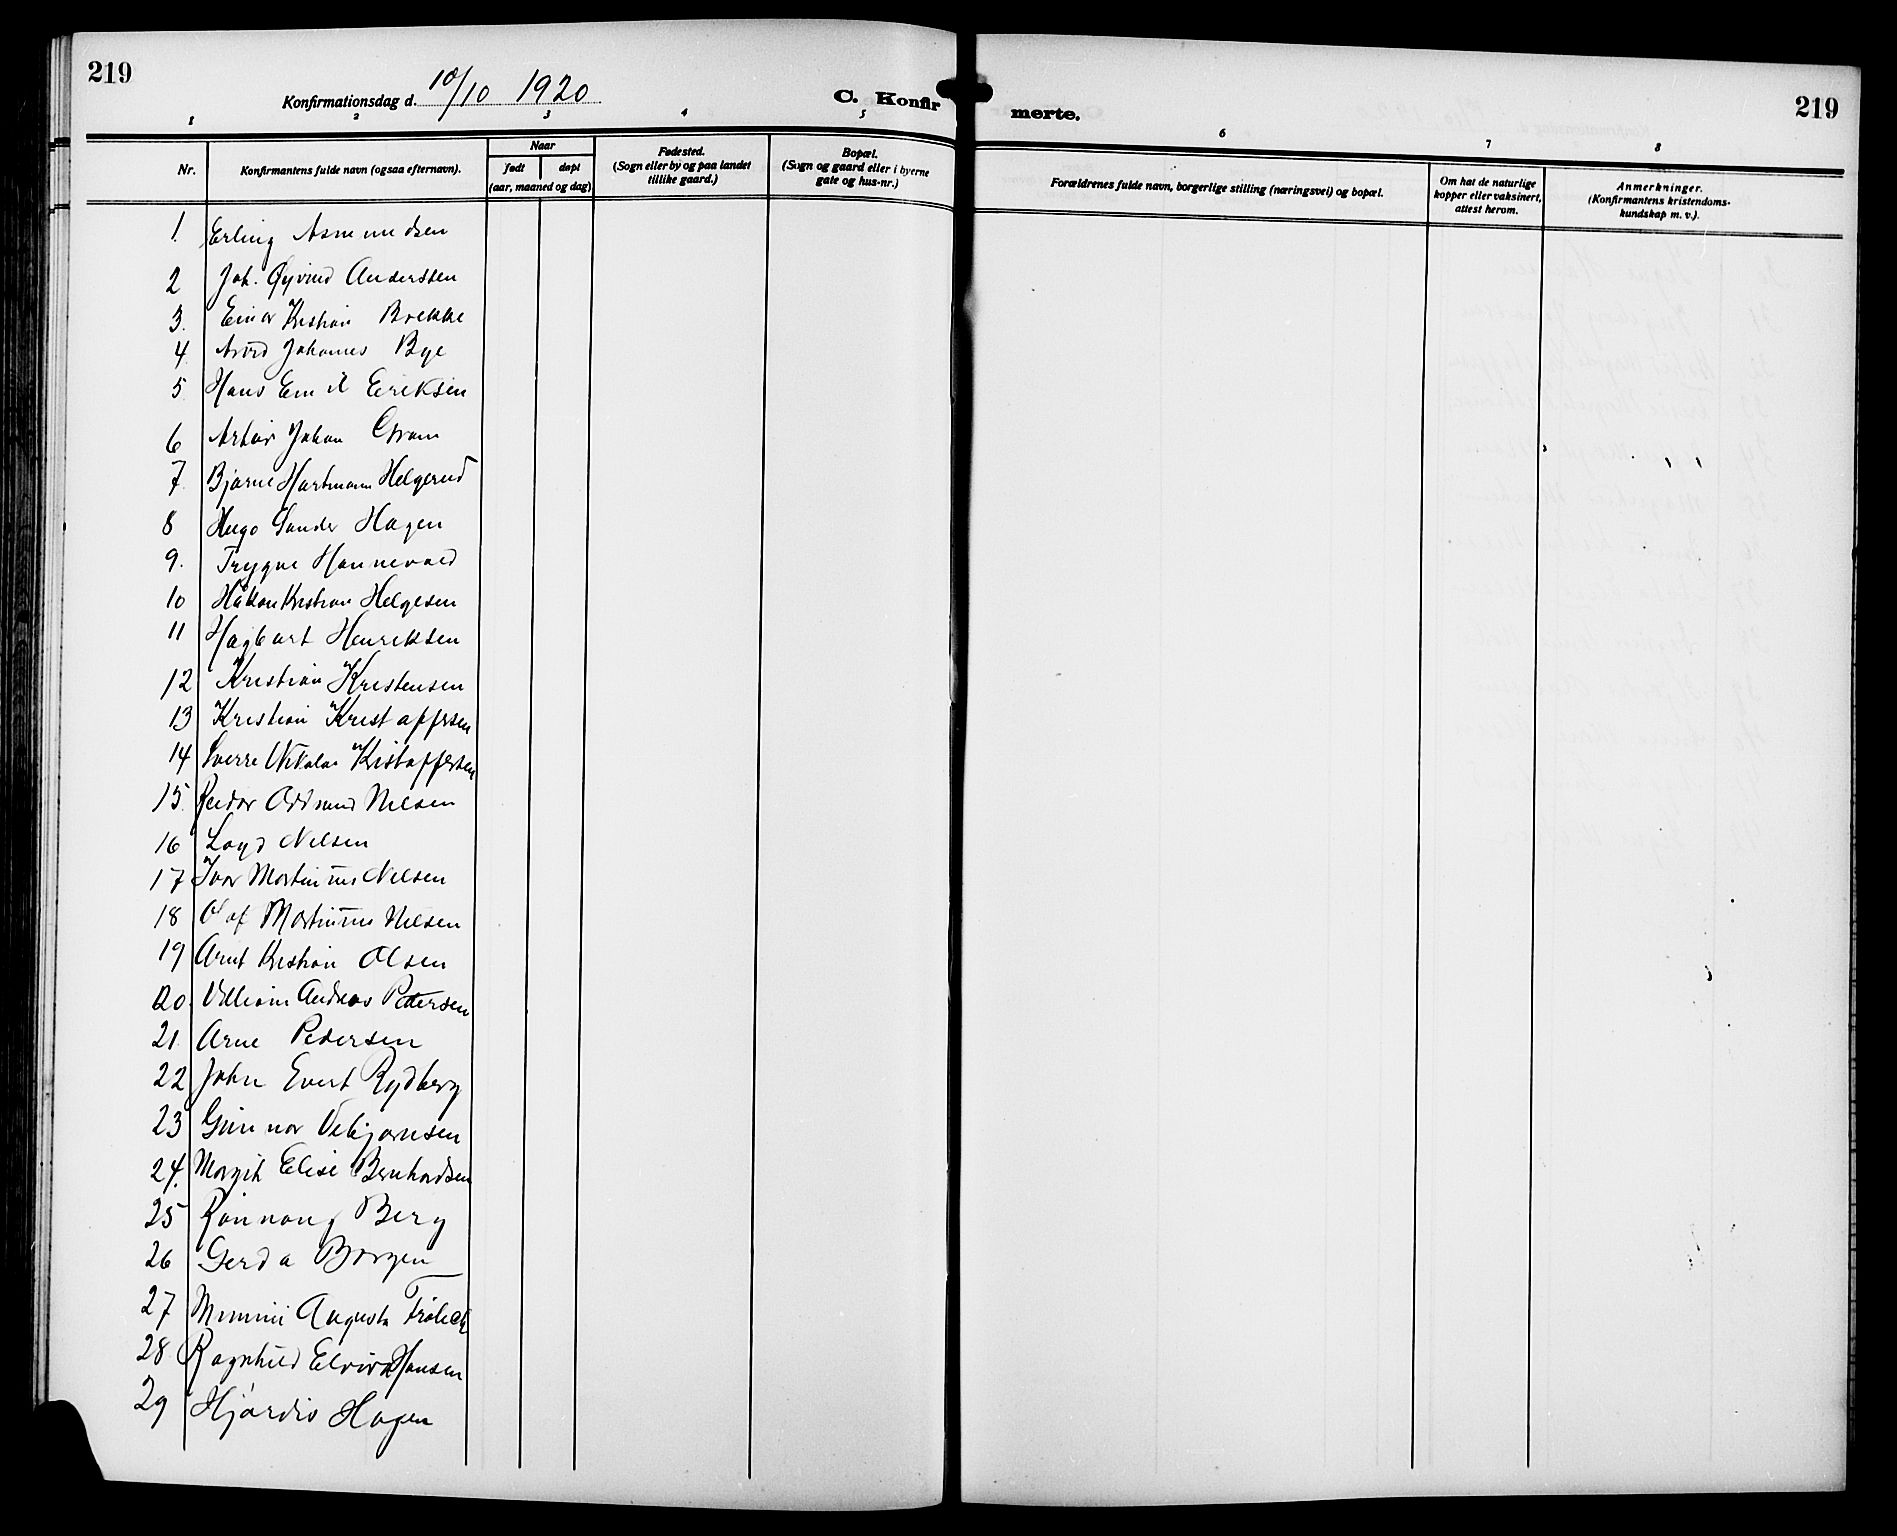 219
Konfirmationsdag d. 10/10 1920
C. Konfirmerte.
219
1 2 3 4 5 6 7 8
Nr.
Konfirmantens fulde navn (ogsaa efternavn).
Naar
født
døpt
(aar, maaned og dag)
Fødested.
(Sogn eller by og paa landet
tillike gaard.)
Bopæl.
(Sogn og gaard eller i byerne
gate og hus-nr.)
Forældrenes fulde navn, borgerlige stilling (næringsvei) og bopæl.
Om hat de naturlige
kopper eller vaksinert,
attest herom.
Anmerkninger.
(Konfirmantens kristendoms-
kundskap m. v.).
1. Erling Asmundsen
2 Joh. Øyvind Anderssen
3. Einar Kristian Brekke
4. Arvid Johannes Bye
5 Hans Emil Eriksen
6 Artur Johan Gram
7. Bjarne Hartmann Helgerud
8 Hugo Sander Hagen
9. Trygve Hannevold
10 Håkon Kristian Helgesen
11 Hagbart Henriksen
12 Kristian Kristensen
13 Kristian Kristoffersen
14 Sverre Nikolai Kristoffersen
15. Reidar Oddmund Nilsen
16 Loyd Nilsen
17 Ivar Martinius Nilsen
18 Olaf Martinius Nilsen
19 Arnt Kristian Olsen
20. William Andreas Petersen
21. Arne Pedersen
22 John Evert Rydberg
23 Gunnar Vebjørnsen
24. Margit Elise Bernhardsen
25 Rønnaug Berg
26 Gerda Borgen
27 Mimmi Augusta Frølich
28 Ragnhild Elvira Hansen
29 Hjørdis Hagen